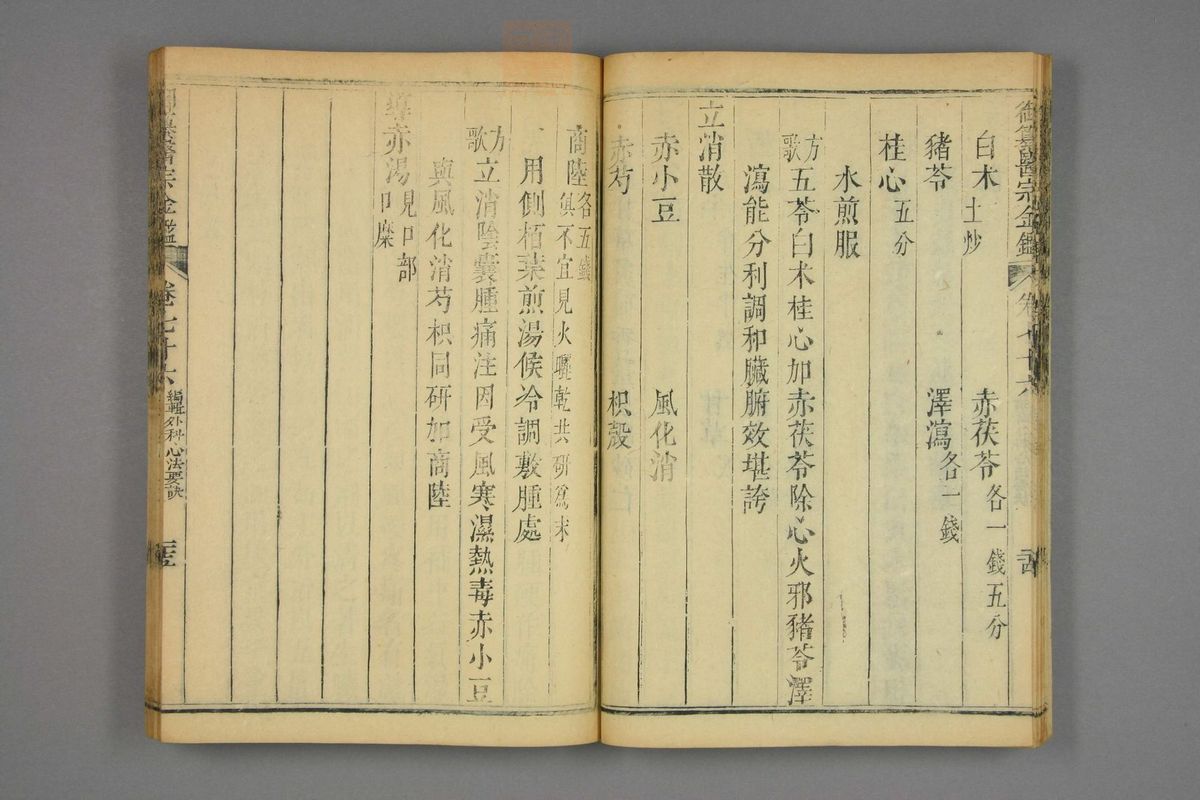 御纂醫宗金鑑 卷七十六
白朮 土炒 赤茯苓 各一錢五分
豬苓 澤瀉 各一錢
桂心 五分
水煎服
方歌 五苓白朮桂心加赤茯苓除心火邪豬苓澤
瀉能分利調和臟腑效堪誇
立消散
赤小豆 風化消
赤芍 枳殼
商陸 各五錢俱不宜見火曬乾共研為末
用側栢葉煎湯候冷調敷腫處
方歌 立消陰囊腫痛注因受風寒濕熱毒赤小豆
與風化消芍枳同研加商陸
導赤湯 見口部口糜
醫宗金鑑 卷七十六 編輯外科心法要訣